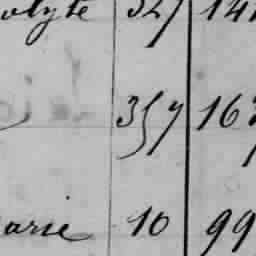 olyte 327 141
357 167
arie 10 99